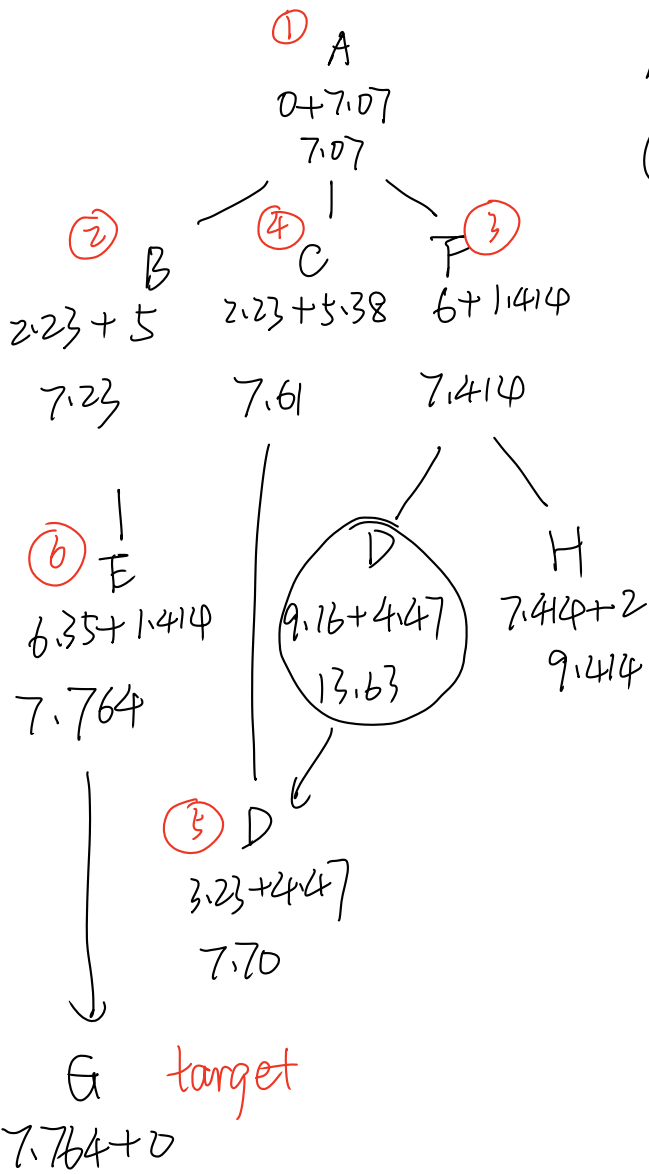 ① A
0+7.07
7.07
② B
④ C
F ③
2.23+5
2.23+5.38
6+1.414
7.23
7.61
7.414
⑥ E
6.35+1.414
7.764
D
9.16+4.47
13.63
H
7.414+2
9.414
⑤ D
3.23+4.47
7.70
G target
7.764+0